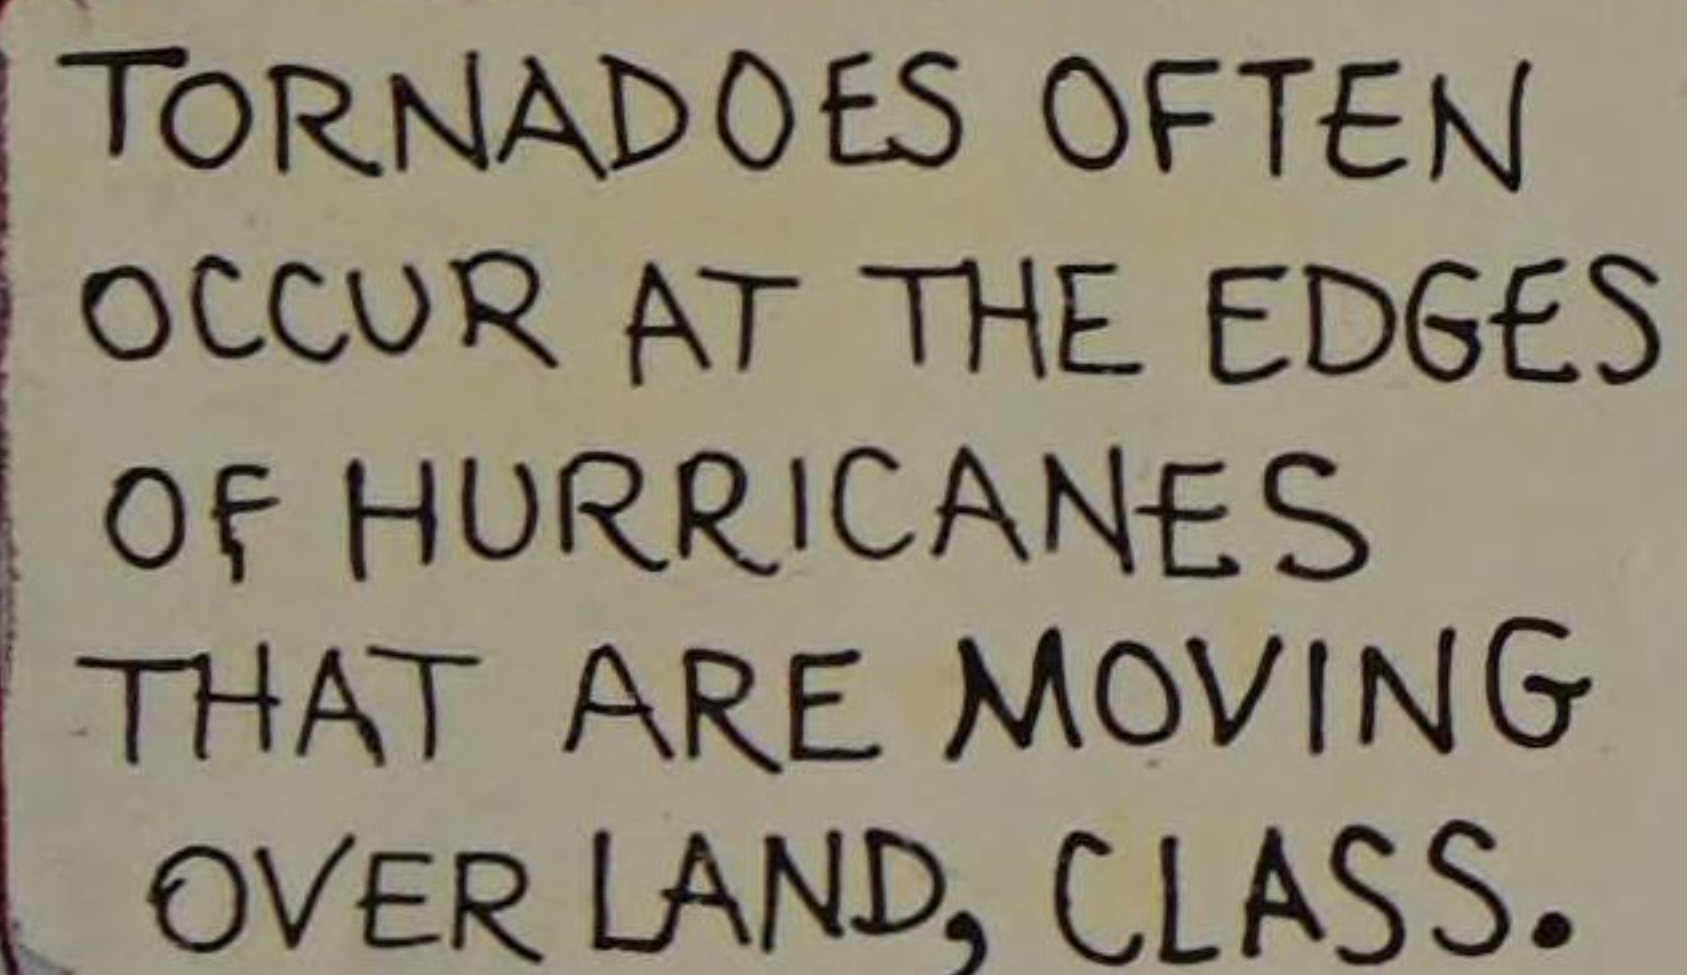 TORNADOES OFTEN
OCCUR AT THE EDGES
OF HURRICANES
THAT ARE MOVING
OVER LAND, CLASS.